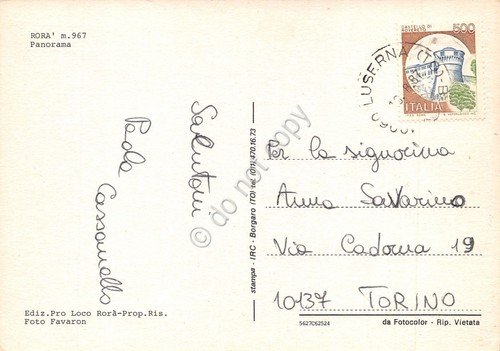 RORA' m.967
Panorama
CASTELLO DI
ROVERETO
500
ITALIA
LUSERNA (TO)
Saluti
Paola
Per la signorina
Anna Savarino
Via Cadorna 19
10137 TORINO
© do not copy
stampa - IRC - Borgaro (TO) tel. (011) 470.16.73
Ediz.Pro Loco Rorà-Prop.Ris.
Foto Favaron
5627C62524
da Fotocolor - Rip. Vietata